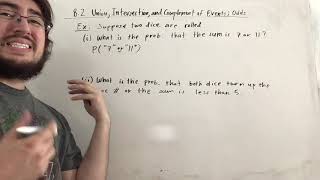 8.2 Union, Intersection, and Complement of Events; Odds
Ex: Suppose two dice are rolled
(i) What is the prob. that the sum is 7 or 11?
P("7" or "11")
(ii) What is the prob. that both dice turn up the
# or the sum is less than 5.